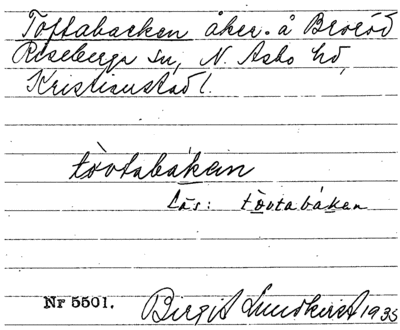 Toftabacken åker. å Broröd
Riseberga Sn, N. Asbo hd,
Kristianstad l.
tòvtabákan
Läs: tòvtabákan
Nr 5501. Birgit Lundkvist 1935